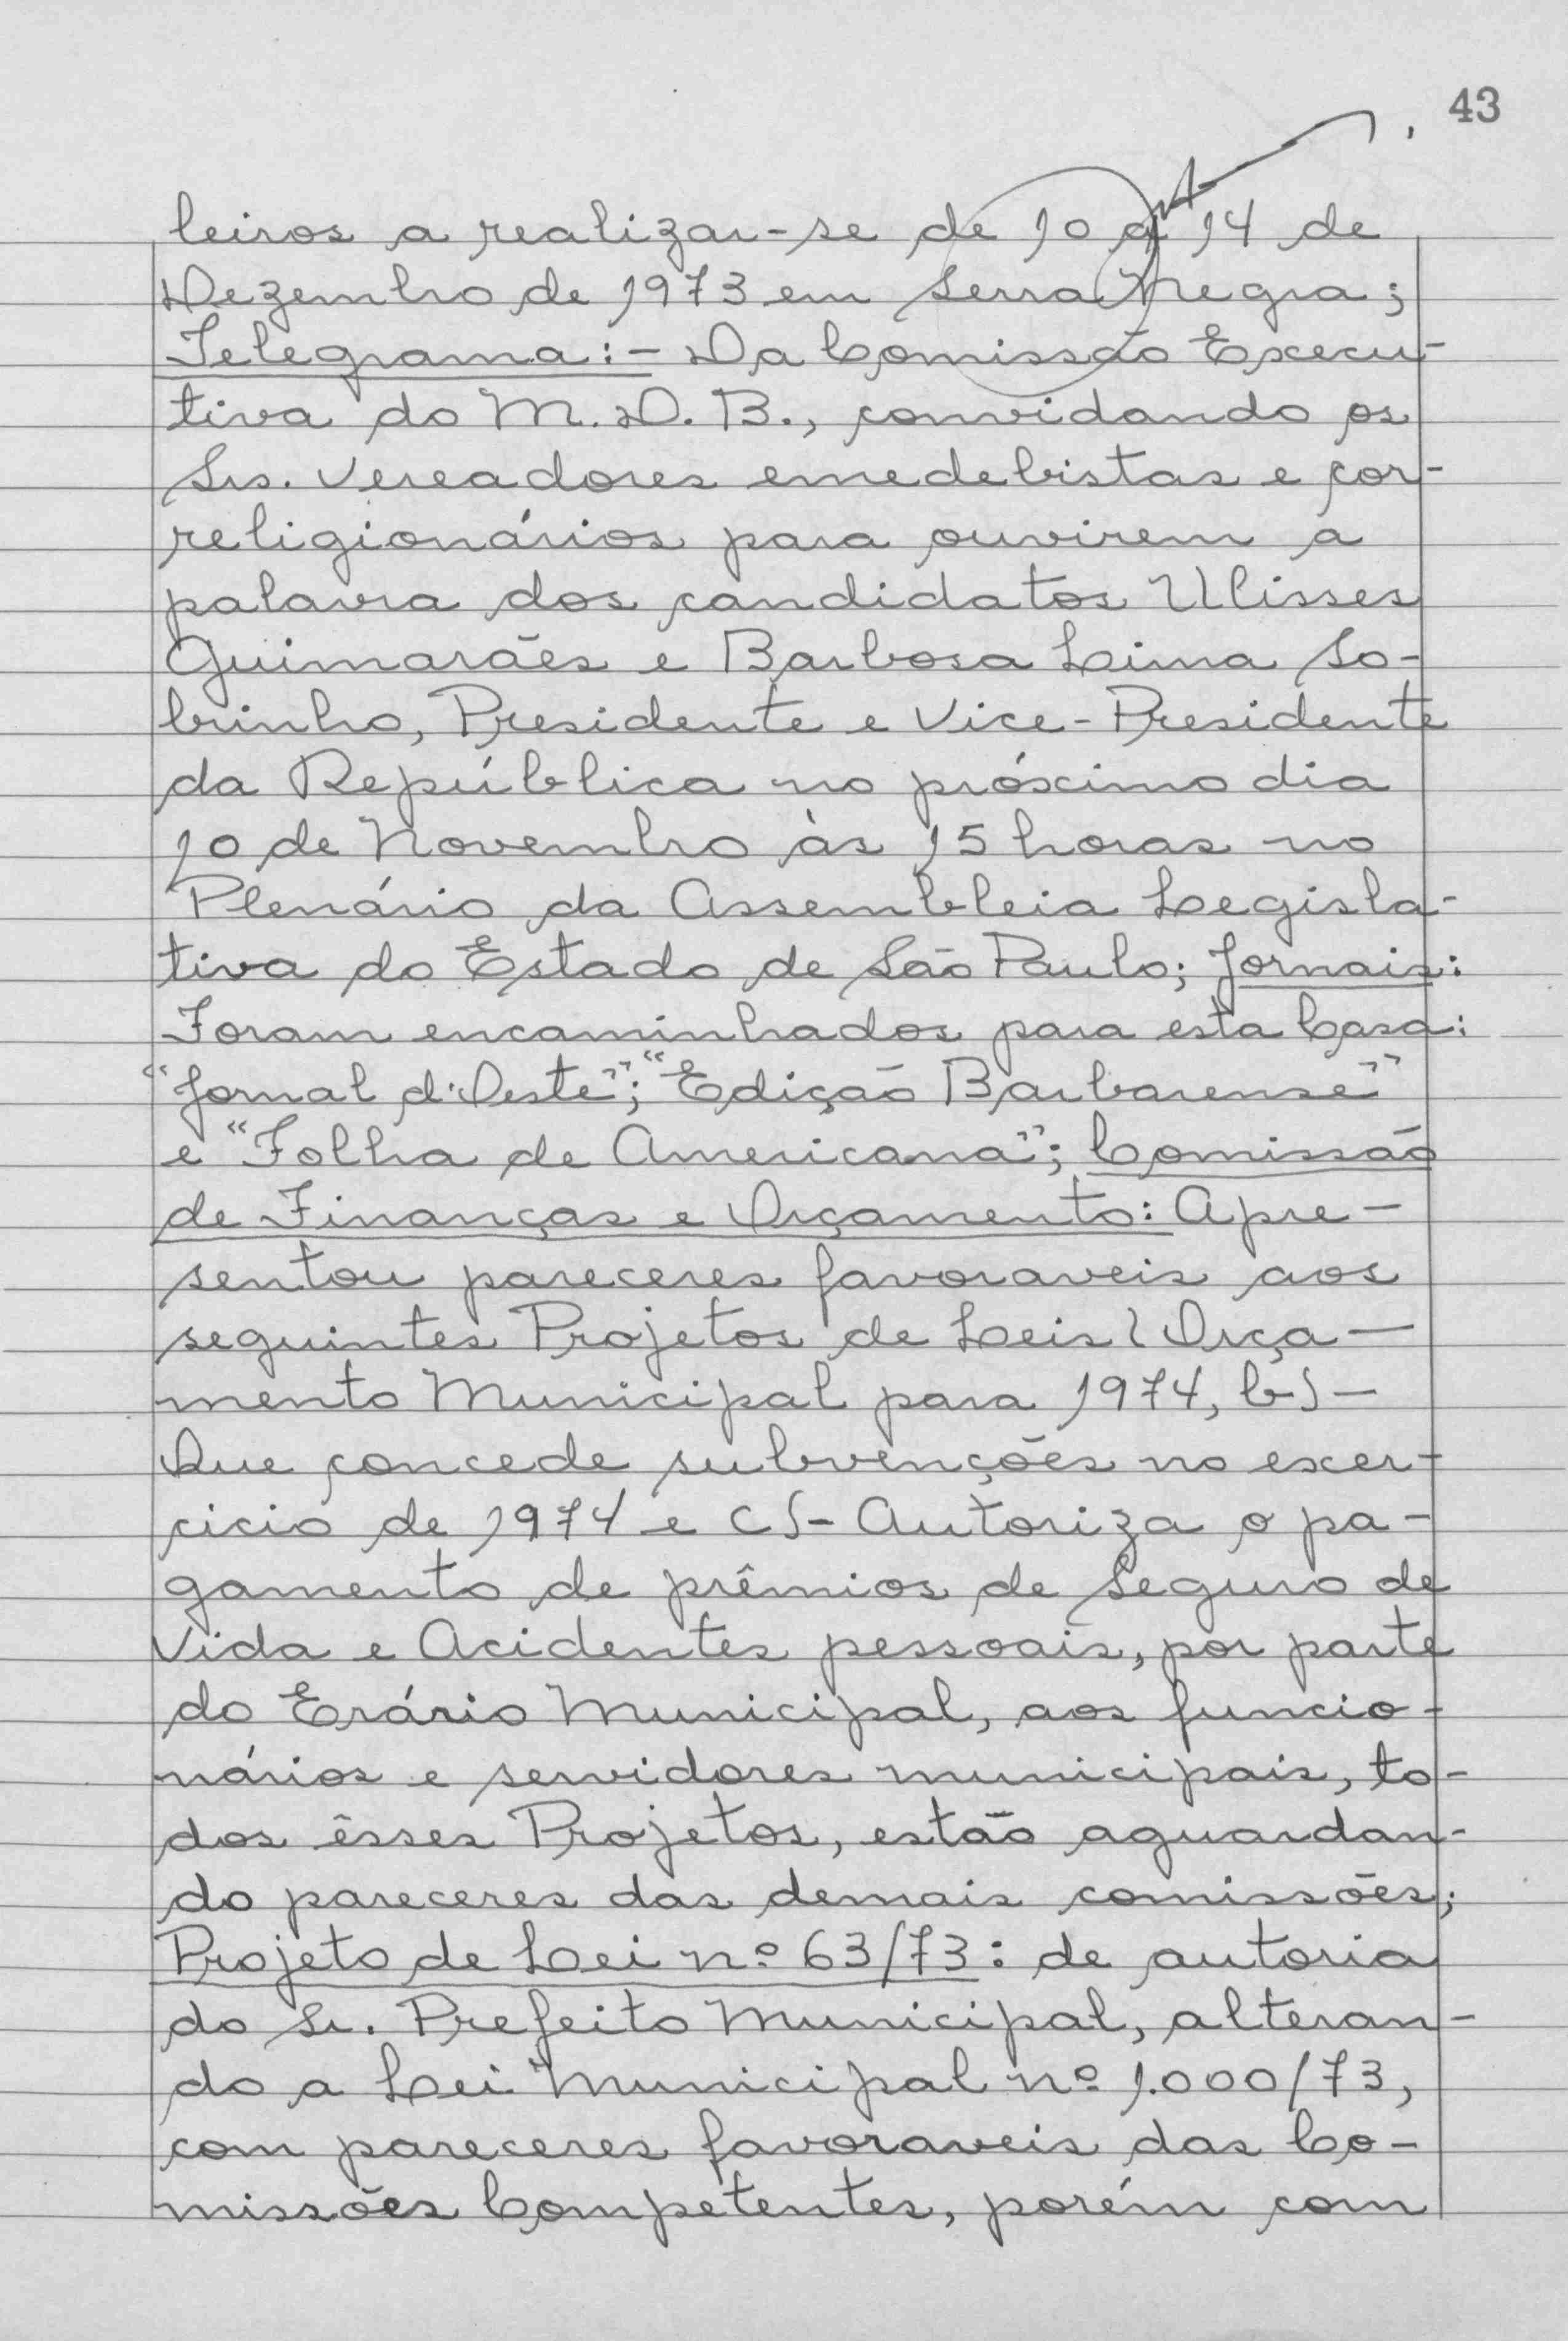 43
leiros a realizar-se de 10 a 14 de
Dezembro de 1973 em Serra Negra;
Telegrama:- Da Comissão Execu-
tiva do M.D.B., convidando os
Srs. Vereadores emedebistas e cor-
religionários para ouvirem a
palavra dos candidatos Ulisses
Guimarães e Barbosa Lima So-
brinho, Presidente e Vice-Presidente
da República no próximo dia
10 de Novembro às 15 horas no
Plenário da Assembleia Legisla-
tiva do Estado de São Paulo; Jornais:
Foram encaminhados para esta Casa:
"Jornal d'Oeste"; "Edição Barbarense"
e "Folha de Americana"; Comissão
de Finanças e Orçamento: Apre-
sentou pareceres favoraveis aos
seguintes Projetos de Leis: Orça-
mento Municipal para 1974, b)-
Que concede subvenções no exer-
cicio de 1974 e c)- Autoriza o pa-
gamento de prêmios de Seguro de
Vida e Acidentes pessoais, por parte
do Erário Municipal, aos funcio-
nários e servidores municipais, to-
dos êsses Projetos, estão aguardan-
do pareceres das demais comissões;
Projeto de Lei nº 63/73: de autoria
do Sr. Prefeito Municipal, alteran-
do a Lei Municipal nº 1.000/73,
com pareceres favoraveis das Co-
missões Competentes, porém com